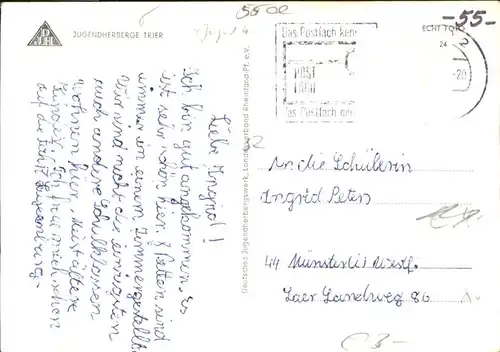 JUGENDHERBERGE TRIER
Liebe Ingrid!
Ich bin gut angekommen. Es
ist sehr schön hier. 8 Betten sind
immer in einem Zimmer gestellt.
Wir sind nicht die einzigsten
auch andere Schulklassen
wohnen hier. Meist ältere
Kinder. Ich freue mich schon
auf die Fahrt Luxemburg.
Deutsches Jugendherbergswerk, Landesverband Rheinland-Pf. e.V.
5502
-55-
ECHT FOTO
24
-20
Das Postfach
POST
Das Postfach
An die Schülerin
Ingrid Peters
44 Münster in Westf.
Laer Landweg 86